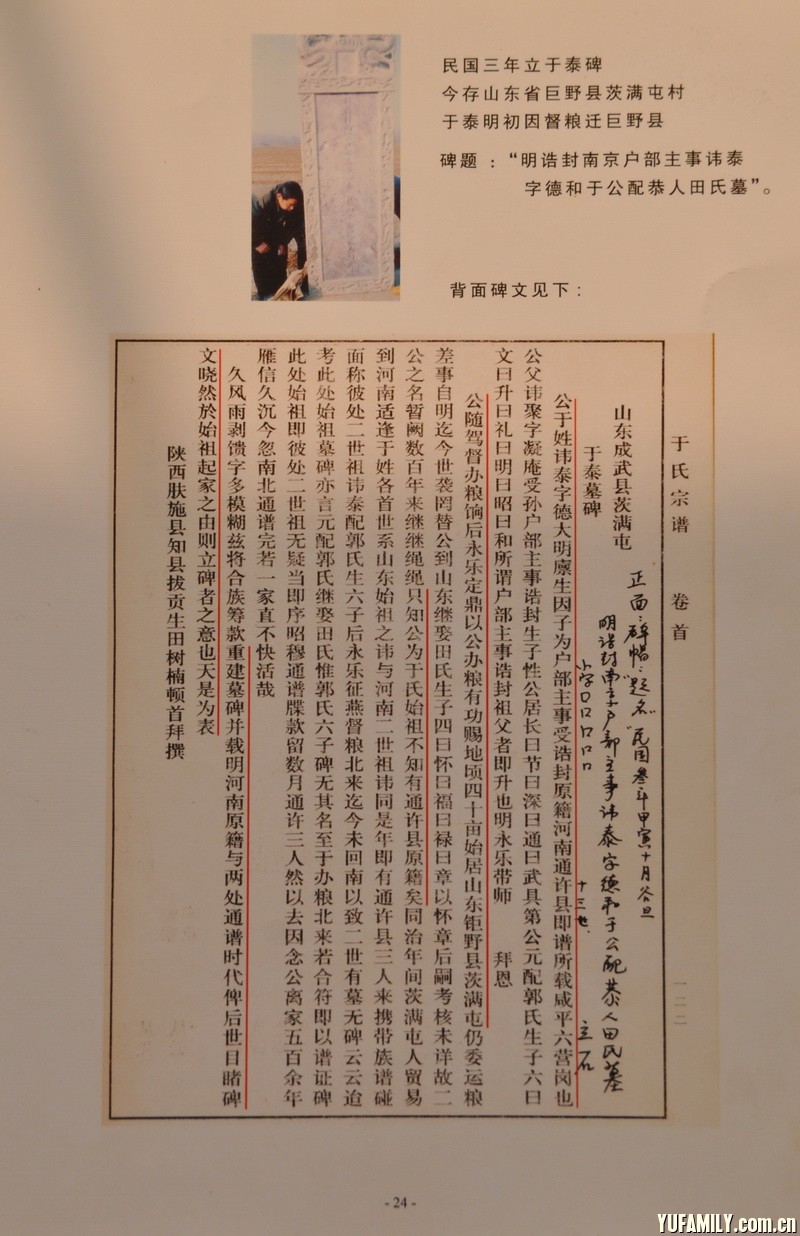 民国三年立于泰碑
今存山东省巨野县茨满屯村
于泰明初因督粮迁巨野县
碑题：“明诰封南京户部主事讳泰
字德和于公配恭人田氏墓”。
背面碑文见下：
于氏宗谱 卷首 一二二
山东成武县茨满屯
正面：碑帽：“题名”民国叁年甲寅十月谷旦
于泰墓碑
明诰封南京户部主事讳泰字德和于公配恭人田氏墓
小字口口口口口 十三世 立石
公于姓讳泰字德大明廪生因子为户部主事受诰封原籍河南通许县即谱所载咸平六营岗也
公父讳聚字凝庵受孙户部主事诰封生子性公居长曰节曰深曰通曰武具第公元配郭氏生子六曰
文曰升曰礼曰明曰昭曰和所谓户部主事诰封祖父者即升也明永乐带师 拜恩
公随驾督办粮饷后永乐定鼎以公办粮有功赐地顷四十亩始居山东钜野县茨满屯仍委运粮
差事自明迄今世袭罔替公到山东继娶田氏生子四曰怀曰福曰禄曰章以怀章后嗣考核未详故二
公之名暂阙数百年来继继绳绳只知公为于氏始祖不知有通许县原籍矣同治年间茨满屯人贸易
到河南适逢于姓各首世系山东始祖之讳与河南二世祖讳同是年即有通许县三人来携带族谱碰
面称彼处二世祖讳泰配郭氏生六子后永乐征燕督粮北来迄今未回南以致二世有墓无碑云云迨
考此处始祖墓碑亦言元配郭氏继娶田氏惟郭氏六子碑无其名至于办粮北来若合符即以谱证碑
此处始祖即彼处二世祖无疑当即序昭穆通谱牒款留数月通许三人然以去因念公离家五百余年
雁信久沉今忽南北通谱完若一家直不快活哉
久风雨剥馈字多模糊兹将合族筹款重建墓碑并载明河南原籍与两处通谱时代俾后世目睹碑
文晓然於始祖起家之由则立碑者之意也天是为表
陕西肤施县知县拔贡生田树楠顿首拜撰
- 24 -
YUFAMILY.com.cn